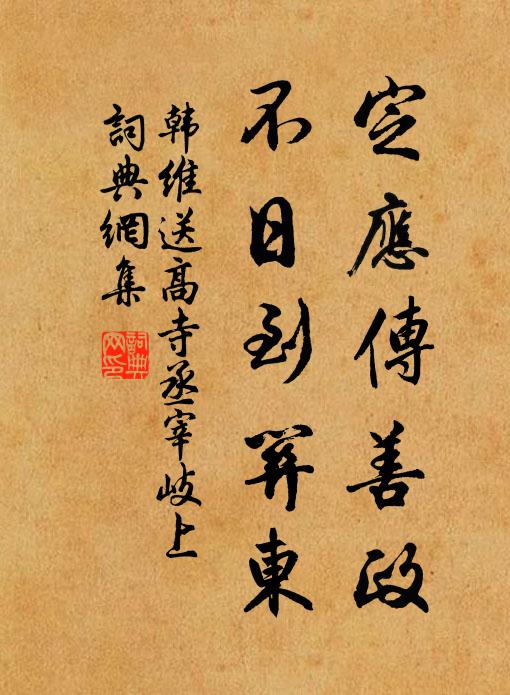 定應傳善政
不日到關東
韩維送高寺丞宰岐上
詞典網集
詞典網印